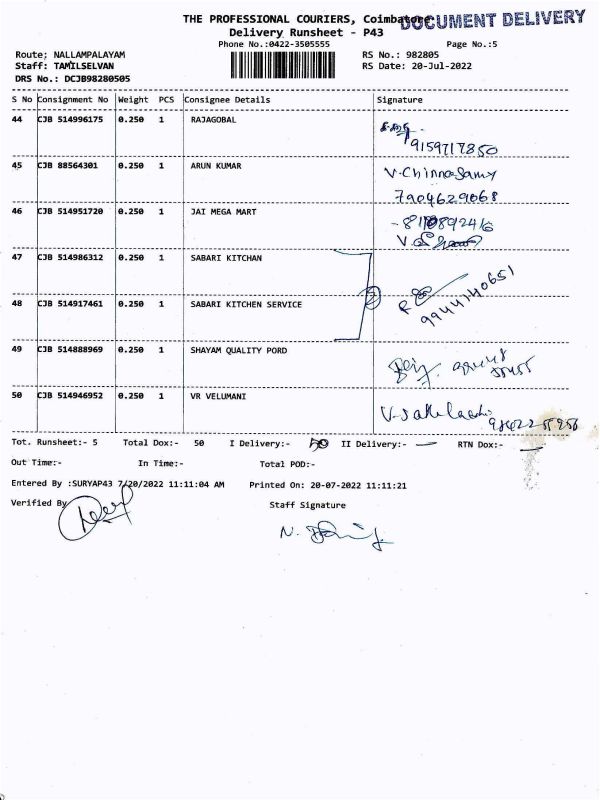 THE PROFESSIONAL COURIERS, Coimbatore
DOCUMENT DELIVERY
Delivery Runsheet - P43
Phone No.:0422-3505555 Page No.:5
Route; NALLAMPALAYAM RS No.: 982805
Staff: TAMILSELVAN RS Date: 20-Jul-2022
DRS No.: DCJB98280505
S No Consignment No Weight PCS Consignee Details Signature
44 CJB 514996175 0.250 1 RAJAGOBAL
9159717850
45 CJB 88564301 0.250 1 ARUN KUMAR V-Chinnasamy
7904629068
46 CJB 514951720 0.250 1 JAI MEGA MART
47 CJB 514986312 0.250 1 SABARI KITCHAN
9944140651
48 CJB 514917461 0.250 1 SABARI KITCHEN SERVICE
49 CJB 514888969 0.250 1 SHAYAM QUALITY PORD
50 CJB 514946952 0.250 1 VR VELUMANI
Tot. Runsheet:- 5 Total Dox:- 50 I Delivery:- 50 II Delivery:- — RTN Dox:- —
Out Time:- In Time:- Total POD:-
Entered By :SURYAP43 7/20/2022 11:11:04 AM Printed On: 20-07-2022 11:11:21
Verified By Staff Signature